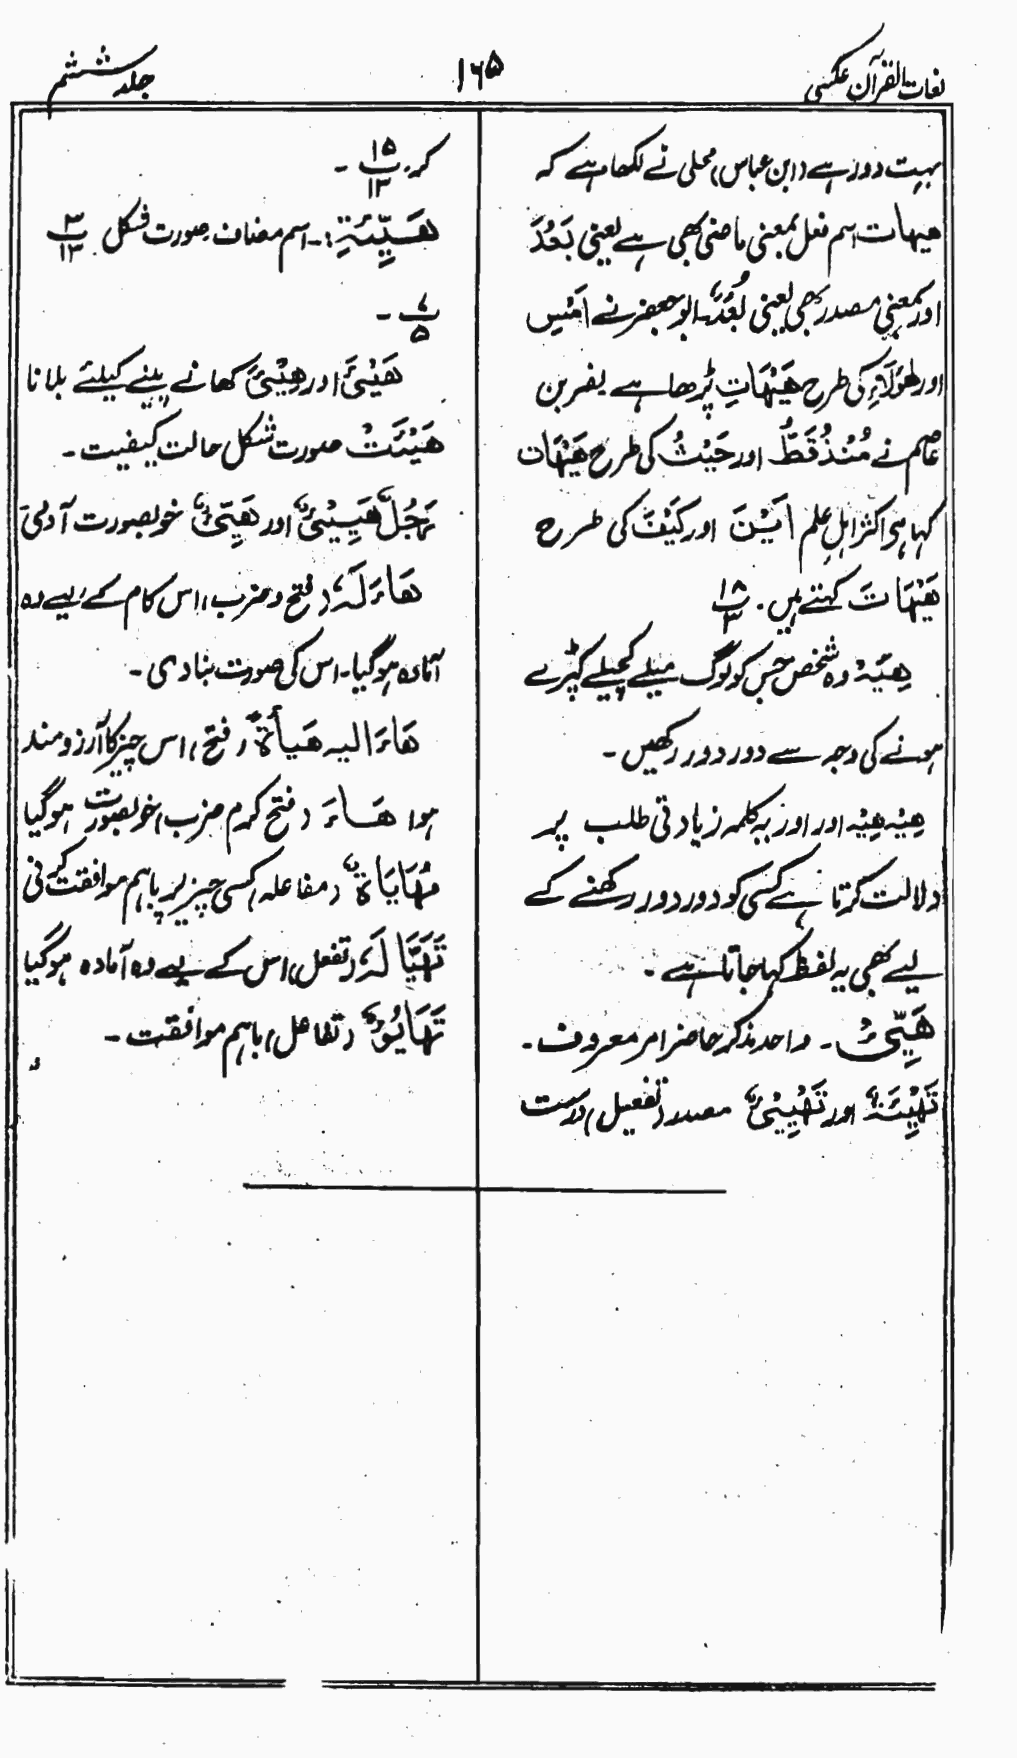 لغات القرآن عکسی
۱۶۵
جلد ششم
بہت دور ہے (ابن عباس) محلی نے لکھا ہے کہ
ھیہات اسم فعل بمعنی ماضی بھی ہے یعنی بَعُدَ
اور بمعنی مصدر بھی یعنی بُعْدٌ۔ ابوجعفر نے اَمْسِ
اور ھٰؤُلَاءِ کی طرح ھَیْہَاتِ پڑھا ہے نصر بن
عاصم نے مُنْذُ قَطُّ اور حَیْثُ کی طرح ھَیْہَاتُ
کہا ہے اکثر اہلِ علم اَیْنَ اور کَیْفَ کی طرح
ھَیْہَاتَ کہتے ہیں۔ ۱۸/۳
ھِیَۃ وہ شخص جس کو لوگ میلے کچیلے کپڑے
ہونے کی وجہ سے دور دور رکھیں۔
ھِیْہ ھِیْہ اور اور یہ کلمہ زیادتی طلب پر
دلالت کرتا ہے کسی کو دور دور رکھنے کے
لیے بھی یہ لفظ کہا جاتا ہے۔
ھَیِّیْٔ ۔ واحد مذکر حاضر امر معروف۔
تَہْیِئَۃٌ اور تَہْیِیْئٌ مصدر (تفعیل) درست
کر۔ ۱۵/۱۳
ھَیْئَۃِ:۔ اسم مضاف۔ صورت شکل ۳/۱۳
۷/۵ ۔
ھَیْئٌ اور ھِیْئٌ کھانے پینے کیلئے بلانا
ھَیْئَتٌ صورت شکل حالت کیفیت۔
رَجُلٌ ھَیِیْئٌ اور ھَیِّئٌ خوبصورت آدمی
ھَاءَ لَہٗ (فتح و ضرب) اس کام کے لیے وہ
آمادہ ہوگیا۔ اس کی صورت بنادی۔
ھَاءَ الیہ ھَیْأَۃً (فتح) اس چیز کا آرزومند
ہوا ھَاءَ (فتح کرم ضرب) خوبصورت ہوگیا
مُہَایَاۃٌ (مفاعلہ) کسی چیز پر باہم موافقت کرنی
تَہَیَّأَ لَہٗ (تفعل) اس کے لیے وہ آمادہ ہوگیا
تَہَایُؤٌ (تفاعل) باہم موافقت۔